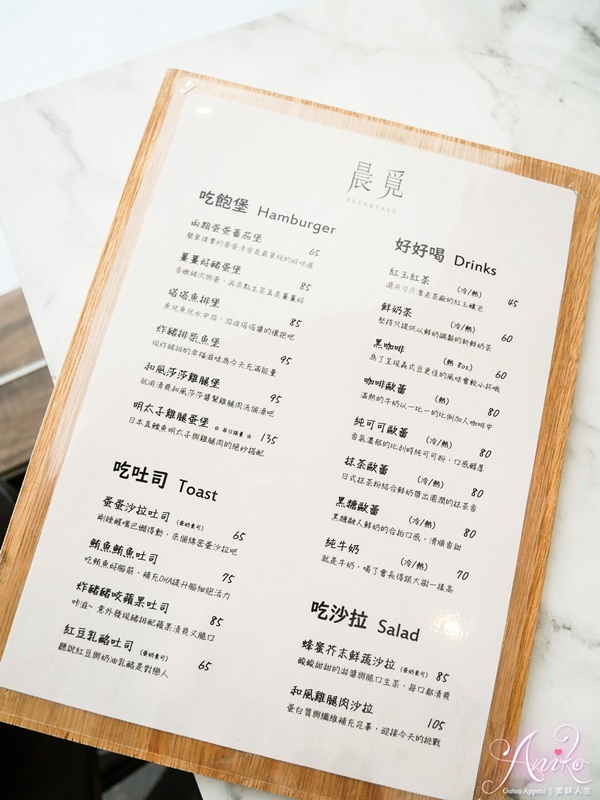 晨覓
BREAKFAST
吃飽堡 Hamburger
兩顆蛋蛋蕃茄堡 65
簡單樸實的蛋蛋清香是最單純的好味道
薑薑好豬蛋堡 85
香嫩豬肉煎蛋，再來點生菜真是薑薑好
塔塔魚排堡 85
魚兒魚兒水中游，游進塔塔醬的懷抱吧
炸豬排柴魚堡 95
現炸豬排的幸福滋味為今天充滿能量
和風莎莎雞腿堡 95
就用清爽和風莎莎醬幫雞腿肉洗個澡吧
明太子雞腿蛋堡 ☆每日限量☆ 135
日本直鱈魚明太子與雞腿肉的絕妙搭配
吃吐司 Toast
蛋蛋沙拉吐司 (蛋奶素可) 65
剛睡醒嘴巴懶得動，來個綿密蛋沙拉吧
鮪魚鮪魚吐司 75
吃鮪魚好腦筋，補充DHA提升腦細胞活力
炸豬豬咬蘋果吐司 85
咔滋~ 意外發現豬排配蘋果清爽又脆口
紅豆乳酪吐司 (蛋奶素可) 65
聽說紅豆與奶油乳酪是對戀人
好好喝 Drinks
紅玉紅茶 (冷/熱) 45
選用日月潭老茶廠的紅玉罐泡
鮮奶茶 (冷/熱) 60
堅持只提供以鮮奶調製的新鮮奶茶
黑咖啡 (熱 8oz) 60
為了呈現義式豆更佳的風味會較小杯哦
咖啡歐蕾 (熱) 80
溫熱的牛奶以一比一的比例加入咖啡中
純可可歐蕾 (冷/熱) 80
香氣濃郁的比利時純可可粉，口感醇厚
抹茶歐蕾 (冷/熱) 80
日式抹茶粉結合鮮奶帶出圓潤的抹茶香
黑糖歐蕾 (冷/熱) 80
黑糖融入鮮奶的合拍口感，清順香甜
純牛奶 (冷/熱) 70
就是牛奶，喝了會長得跟大樹一樣高
吃沙拉 Salad
蜂蜜芥末鮮蔬沙拉 (蛋奶素可) 85
酸酸甜甜的淋醬與脆口生菜，每口都清爽
和風雞腿肉沙拉 105
蛋白質與纖維補充完畢，迎接今天的挑戰
Aniko
Guten Appetit | 美味人生